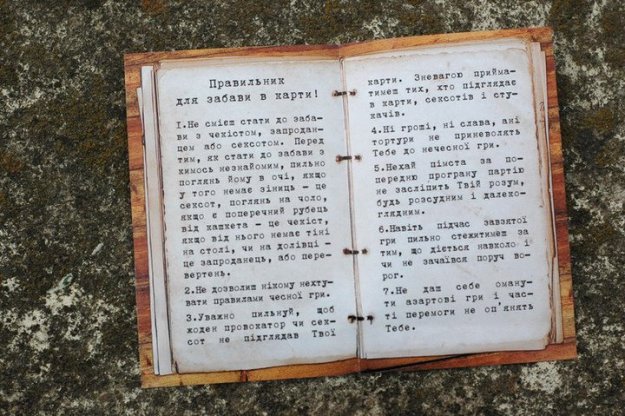 Правильник
для забави в карти!
I.Не смієш стати до заба-
ви з чекістом, запродан-
цем або сексотом. Перед
тим, як стати до забави з
кимось незнайомим, пильно
поглянь йому в очі, якщо
у того немає зіниць - це
сексот, поглянь на чоло,
якщо є поперечний рубець
від кашкета - це чекіст,
якщо від нього немає тіні
на столі, чи на долівці -
це запроданець, або пере-
вертень.
2.Не дозволиш нікому нехту-
вати правилами чесної гри.
3.Уважно пильнуй, щоб
жоден провокатор чи сек-
сот не підглядав Твої
карти. Зневагою прийма-
тимеш тих, хто підглядає
в карти, сексотів і сту-
качів.
4.Ні гроші, ні слава, ані
тортури не приневолять
Тебе до нечесної гри.
5.Нехай пімста за по-
передню програну партію
не засліпить Твій розум,
будь розсудним і далеко-
глядним.
6.Навіть підчас завзятої
гри пильно стежитимеш за
тим, що діється навколо і
чи не зачаївся поруч во-
рог.
7.Не даш себе оману-
ти азартові гри і час-
ті перемоги не оп'янять
Тебе.